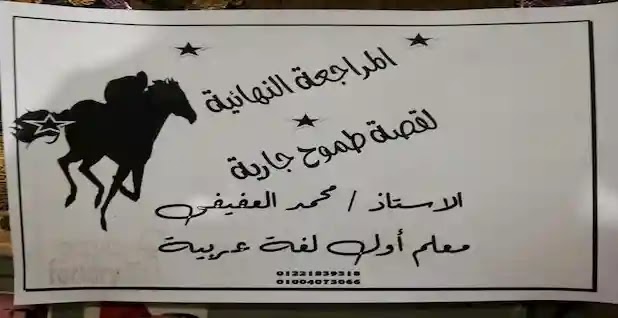 المراجعة النهائية
لقصة طموح جارية
الاستاذ / محمد العفيفى
معلم أول لغة عربية
01221839318
01004073066
factory